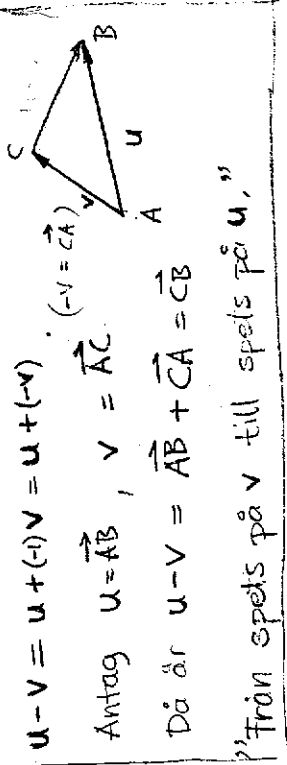 u - v = u + (-1)v = u + (-v)
. (-v = \vec{CA})
Antag u = \vec{AB} , v = \vec{AC}.
Då är u - v = \vec{AB} + \vec{CA} = \vec{CB}
"Från spets på v till spets på u."
C
B
v
u
A